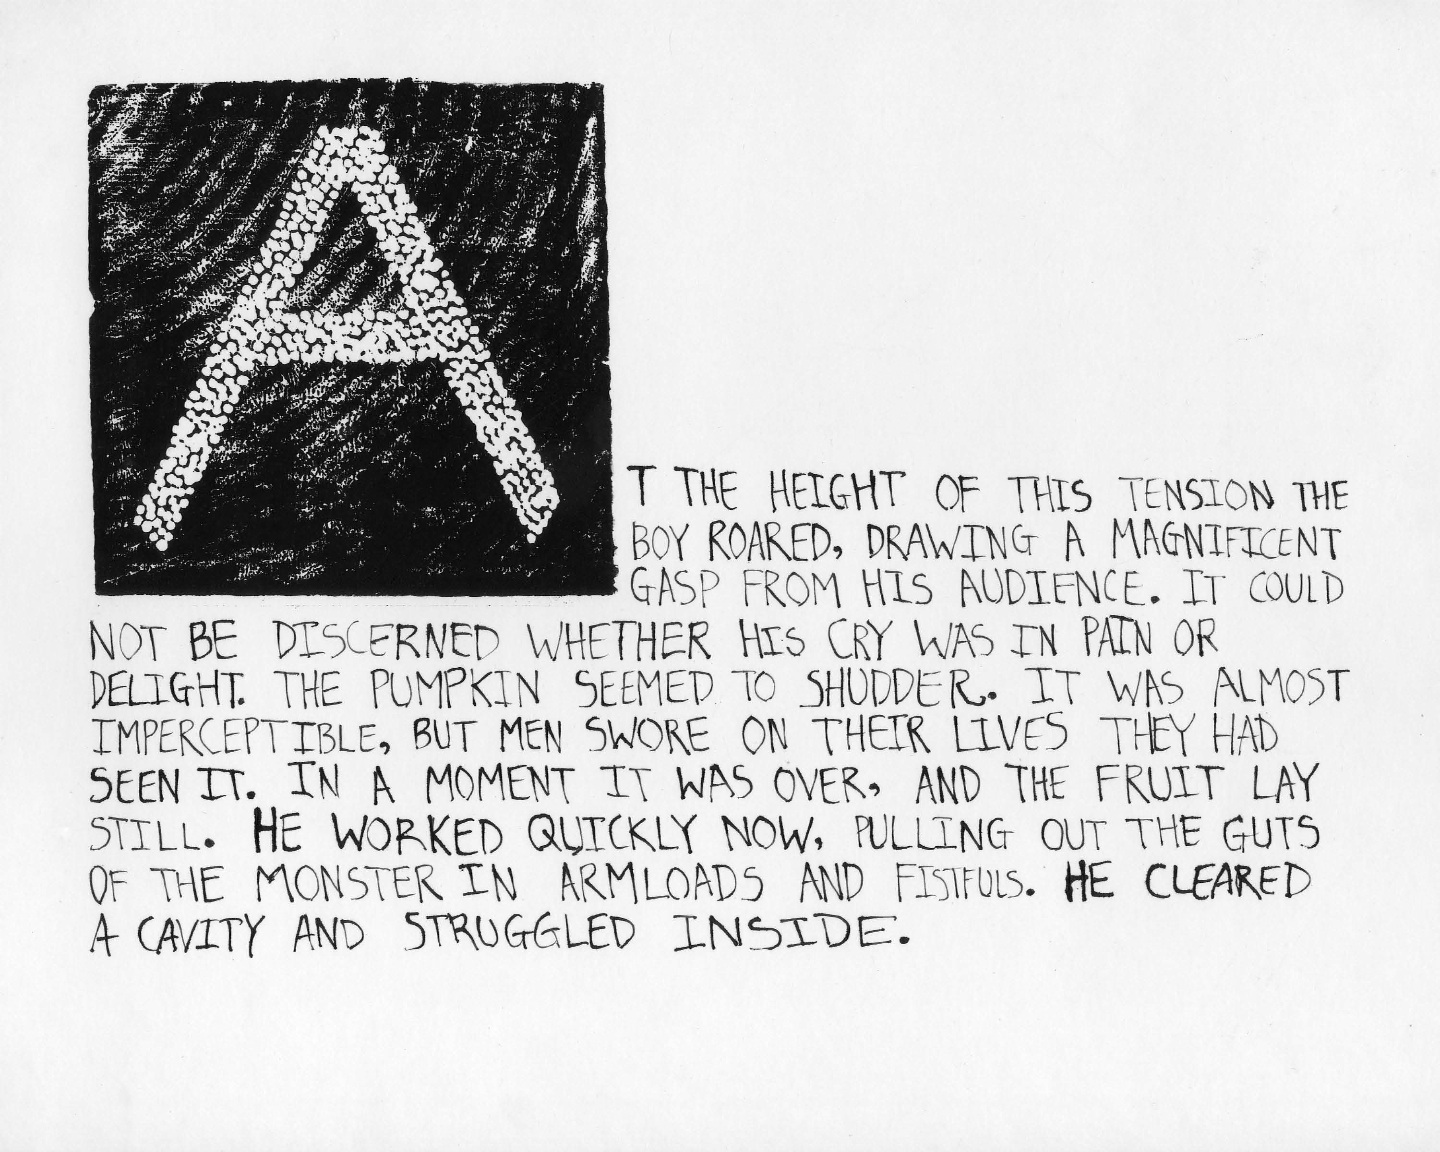 AT THE HEIGHT OF THIS TENSION THE
BOY ROARED, DRAWING A MAGNIFICENT
GASP FROM HIS AUDIENCE. IT COULD
NOT BE DISCERNED WHETHER HIS CRY WAS IN PAIN OR
DELIGHT. THE PUMPKIN SEEMED TO SHUDDER. IT WAS ALMOST
IMPERCEPTIBLE, BUT MEN SWORE ON THEIR LIVES THEY HAD
SEEN IT. IN A MOMENT IT WAS OVER, AND THE FRUIT LAY
STILL. HE WORKED QUICKLY NOW, PULLING OUT THE GUTS
OF THE MONSTER IN ARMLOADS AND FISTFULS. HE CLEARED
A CAVITY AND STRUGGLED INSIDE.